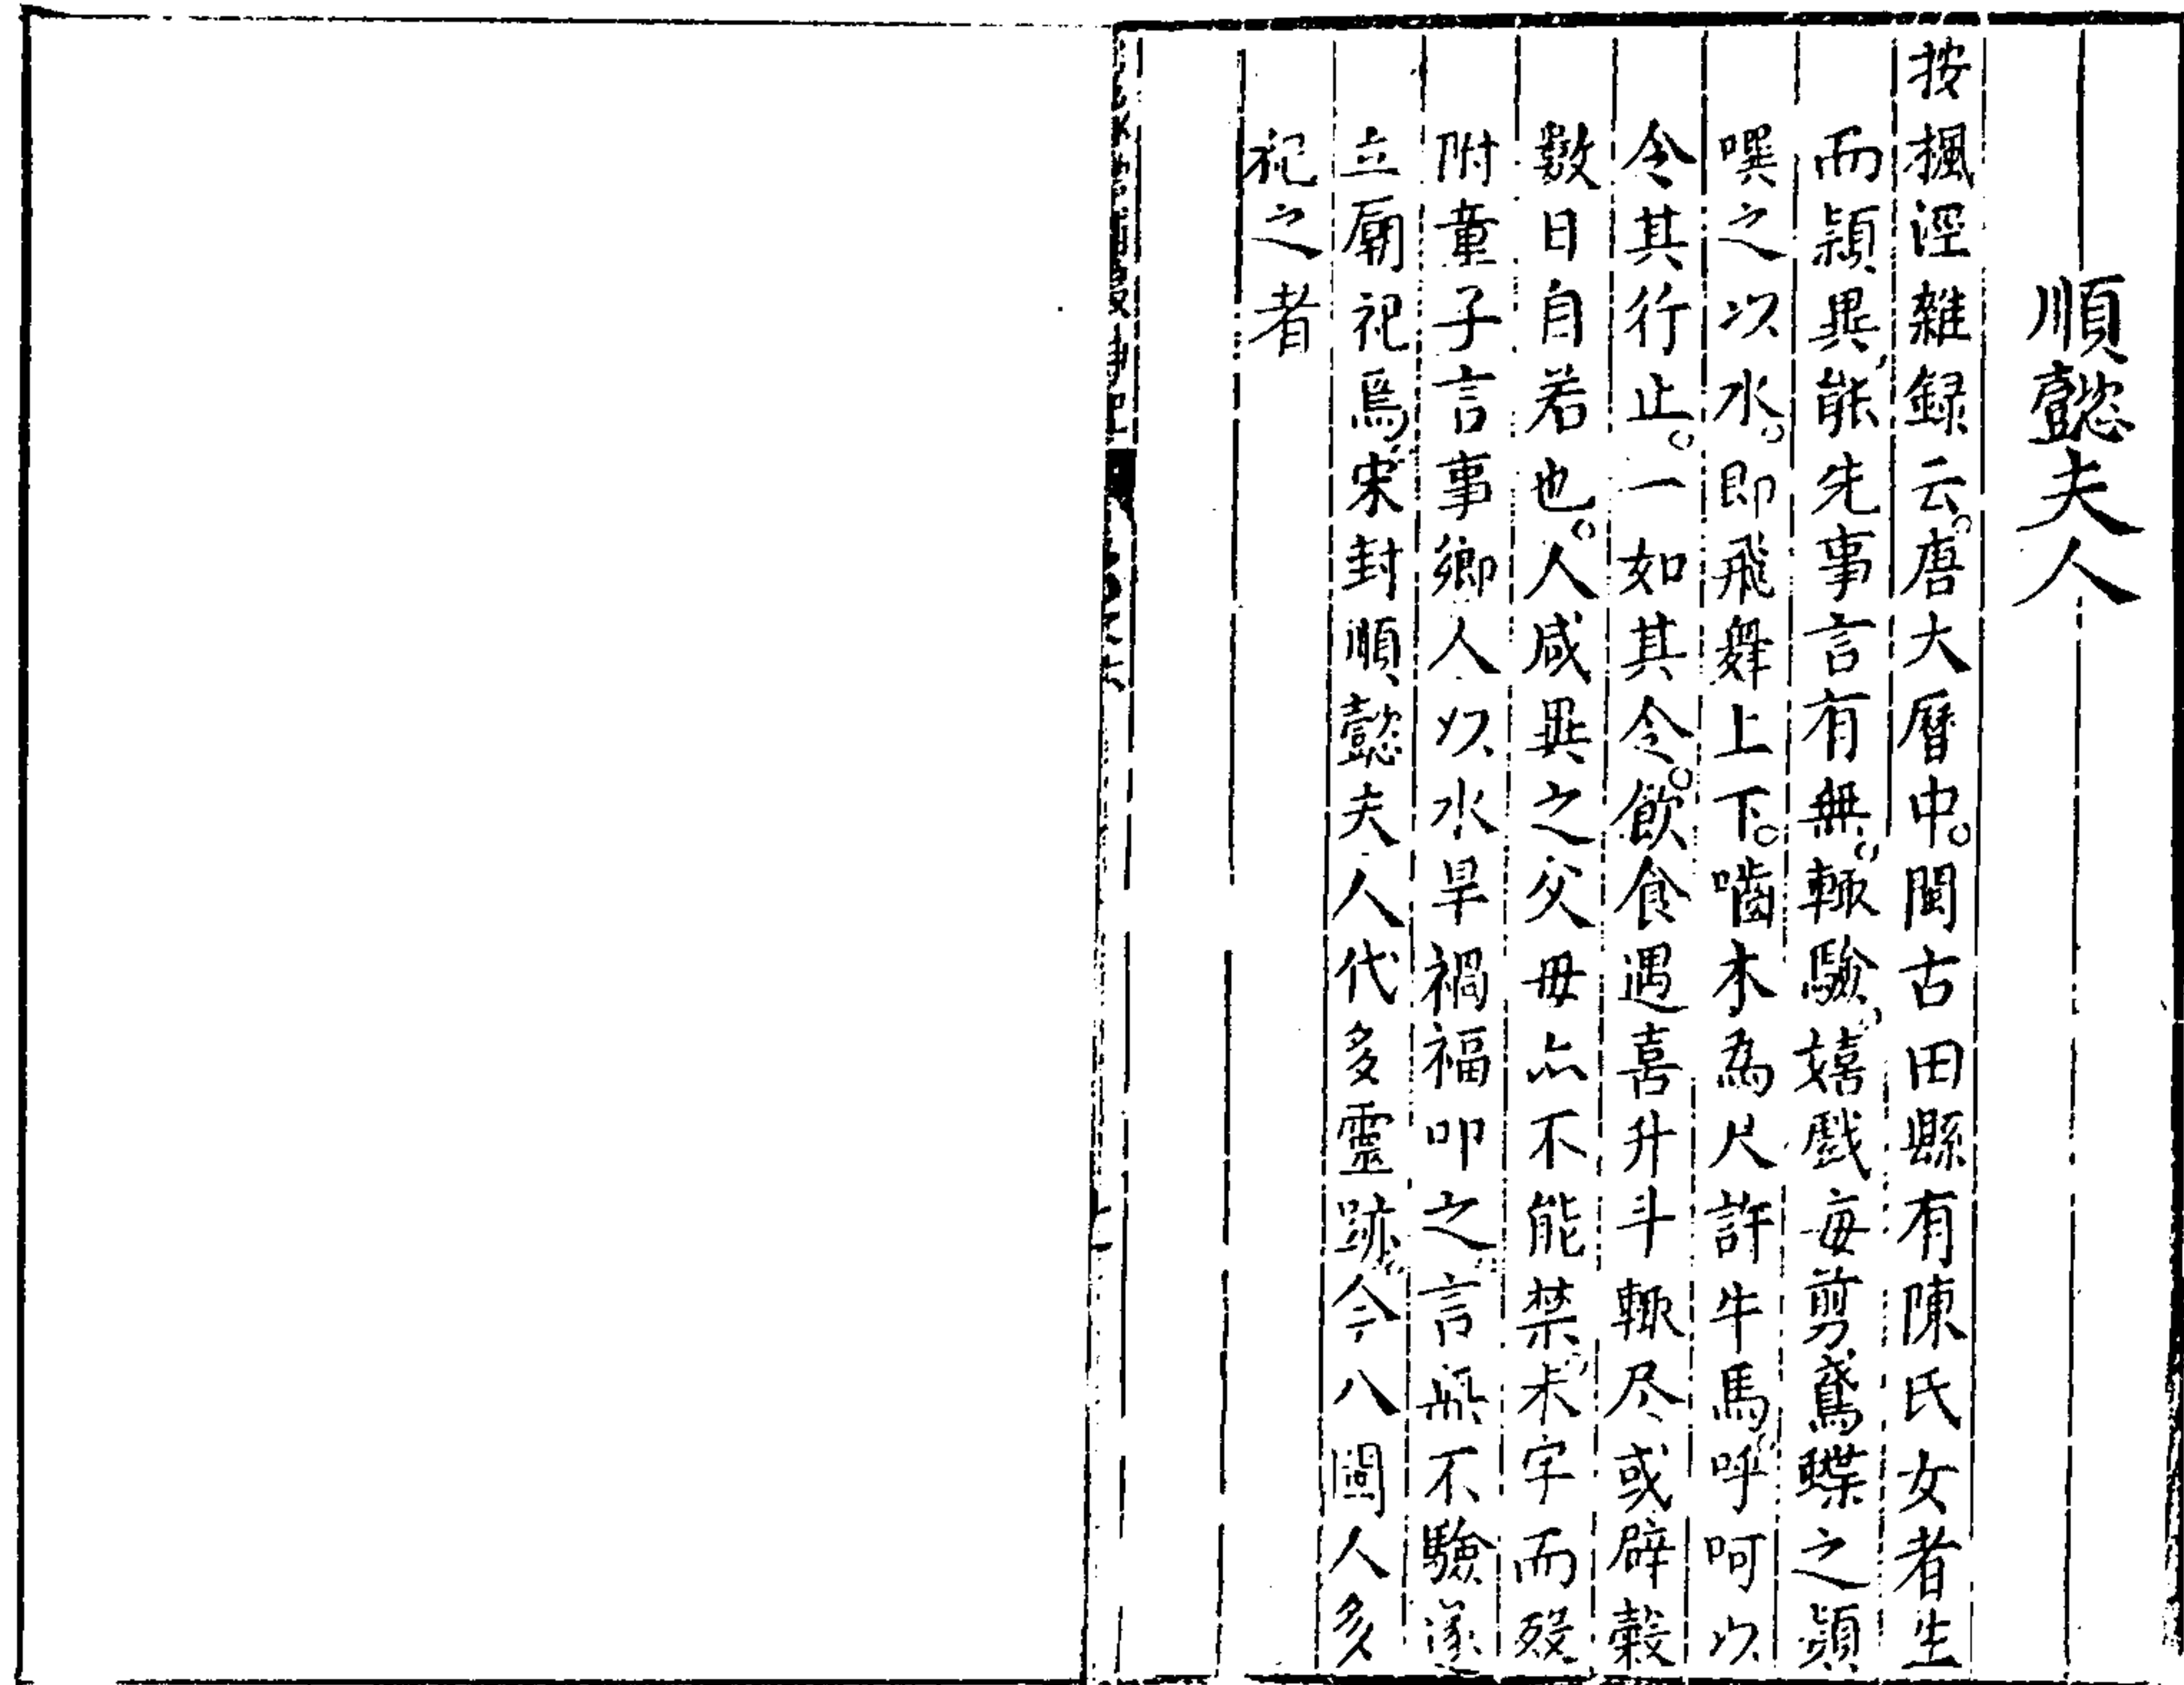 順懿夫人
按楓涇雜録云。唐大曆中。閩古田縣有陳氏女者生
而穎異、能先事言有無。輒驗。嬉戲每剪鳶蝶之類
噀之以水。即飛舞上下。嚙木為尺許牛馬呼呵以
令其行止。一如其令。飲食遇喜升斗輒尽或辟穀
數日自若也。人咸異之父毋亦不能禁。未字而歿
附童子言事鄉人以水旱禍福叩之言無不驗遂
立廟祀焉、宋封順懿夫人代多靈跡今八閩人多
祀之者